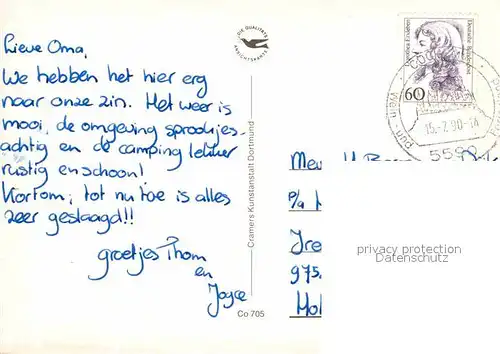 Lieve Oma,
We hebben het hier erg
naar onze zin. Het weer is
mooi, de omgeving sprookjes-
achtig en de camping lekker
rustig en schoon!
Kortom, tot nu toe is alles
zeer geslaagd!!
groetjes Thom
en
Joyce
DIE QUALITÄTS
ANSICHTSKARTE
Cramers Kunstanstalt Dortmund
Co 705
Deutsche Bundespost
60
15.-7.90-14
5590
Mev
P/a
975
privacy protection
Datenschutz